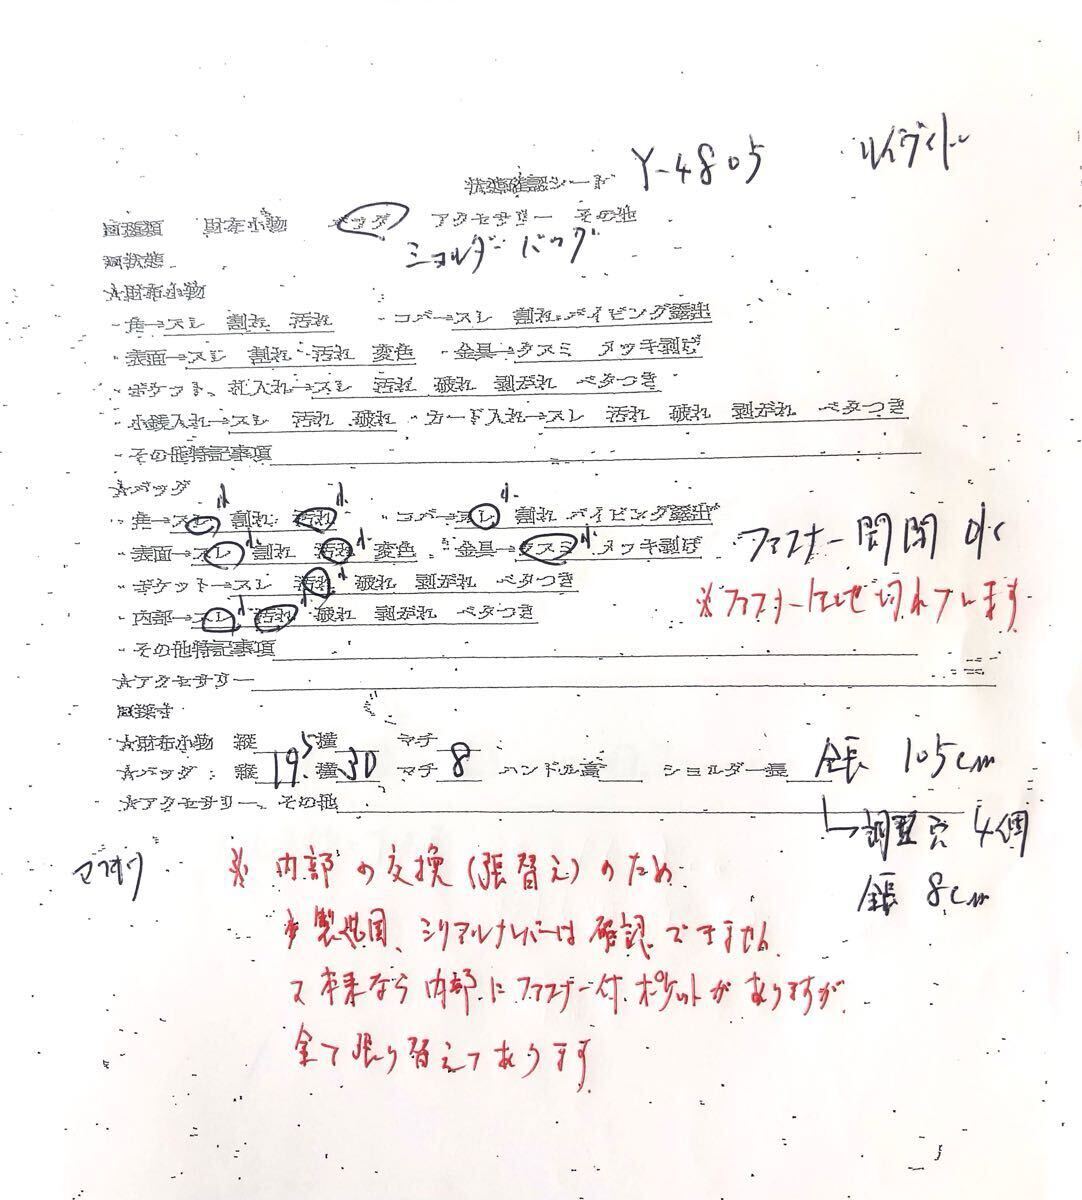 状態確認シート Y-4805 ルイヴィトン
財布小物 バッグ アクセサリー その他
ショルダーバッグ
■状態
☆財布小物
・角→スレ 割れ 汚れ ・コバ→スレ 割れ パイピング露出
・表面→スレ 割れ 汚れ 変色 ・金具→クスミ メッキ剥げ
・ポケット、札入れ→スレ 汚れ 破れ 剥がれ ベタつき
・小銭入れ→スレ 汚れ 破れ ・カード入れ→スレ 汚れ 破れ 剥がれ ベタつき
・その他特記事項
☆バッグ
・角→スレ小 割れ 汚れ小 ・コバ→スレ小 割れ パイピング露出
・表面→スレ小 割れ 汚れ小 変色 ・金具→クスミ小 メッキ剥げ ファスナー開閉 OK
・ポケット→スレ 汚れ小 破れ 剥がれ ベタつき
※ファスナー 切れています
・内部→スレ小 汚れ小 破れ 剥がれ ベタつき
・その他特記事項
☆アクセサリー
■採寸
☆財布小物 縦 横 マチ
☆バッグ:縦 19.5 横 30 マチ 8 ハンドル高 ショルダー長 全長 105cm
☆アクセサリー、その他
調整穴 4個
全長 8cm
※内部の交換(張替え)のため
製造国、シリアルナンバーは確認できません
本来なら内部にファスナー付ポケットがありますが
全て張り替えてあります